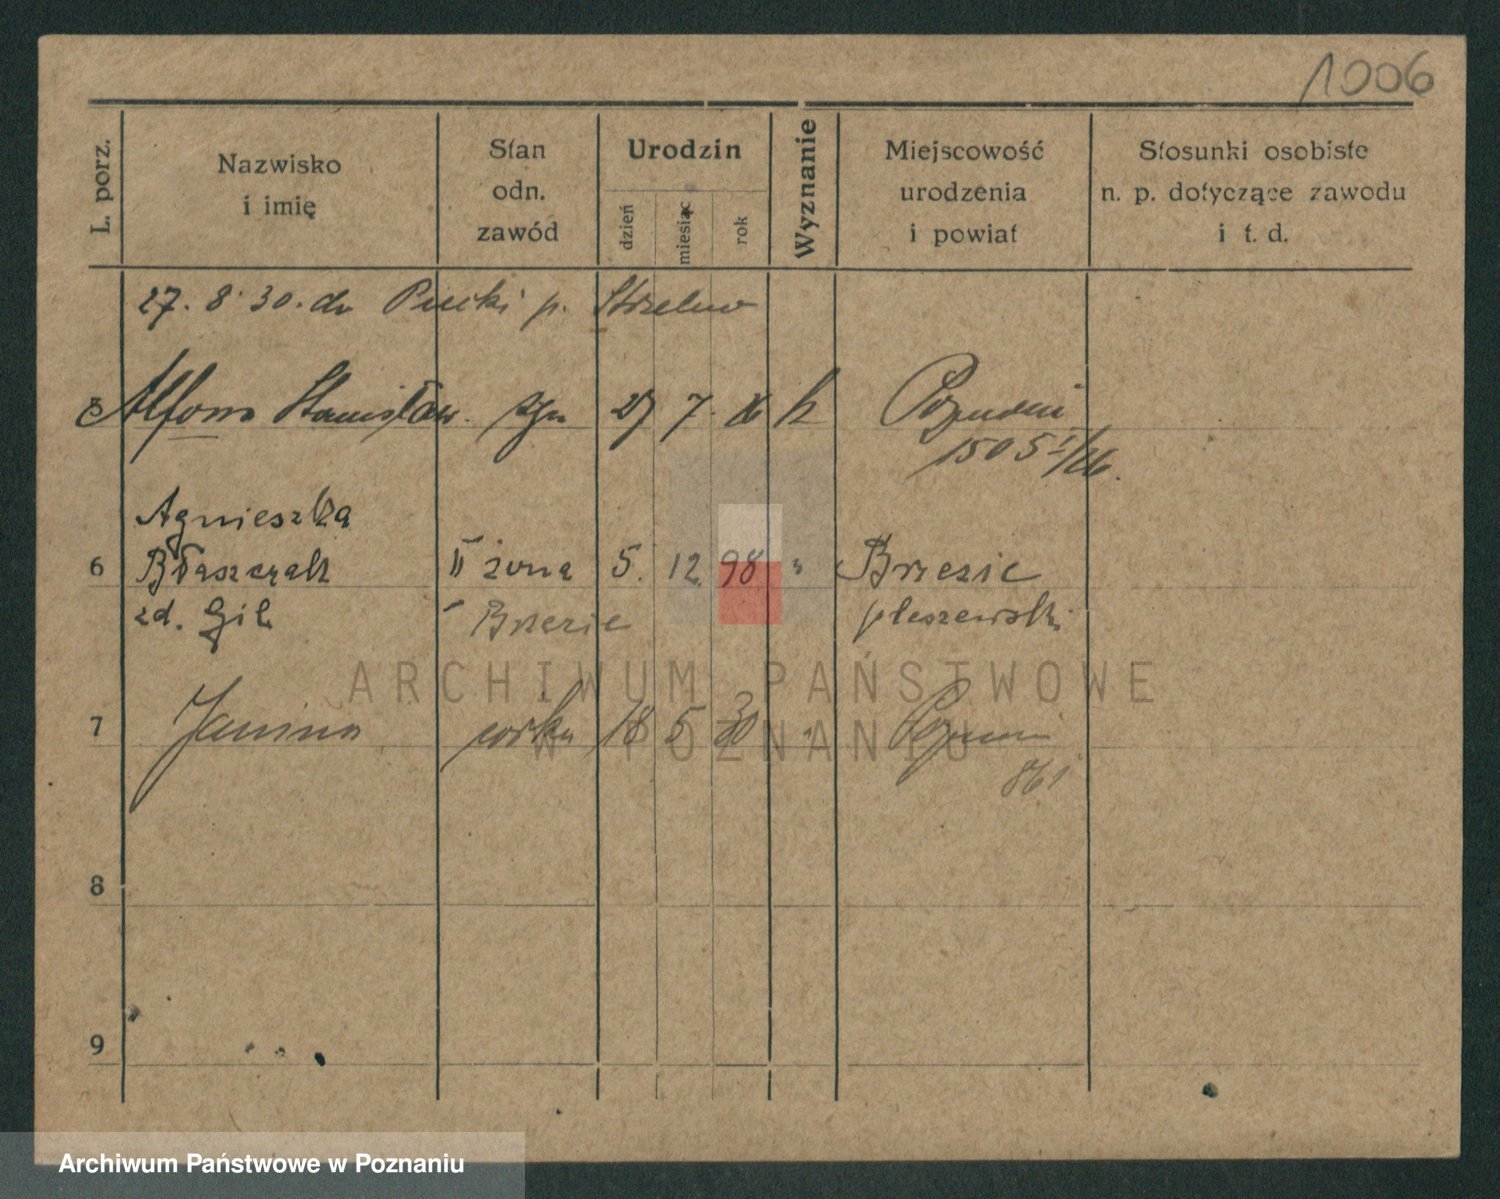 1006
L. porz.
Nazwisko
i imię
Stan
odn.
zawód
Urodzin
dzień
miesiąc
rok
Wyznanie
Miejscowość
urodzenia
i powiat
Stosunki osobiste
n. p. dotyczące zawodu
i t. d.
27. 8. 30. do Piecki p. Strzelno
5 Alfons Stanisław syn 27 7. 26 k Poznań
1505 I/26.
Agnieszka
6 Błaszczak II żona 5. 12. 98 " Brzezie
zd. Gil Brzezie pleszewski
7 Janina córka 18 5 30 " Poznań
861
8
9
ARCHIWUM PAŃSTWOWE
W POZNANIU
Archiwum Państwowe w Poznaniu